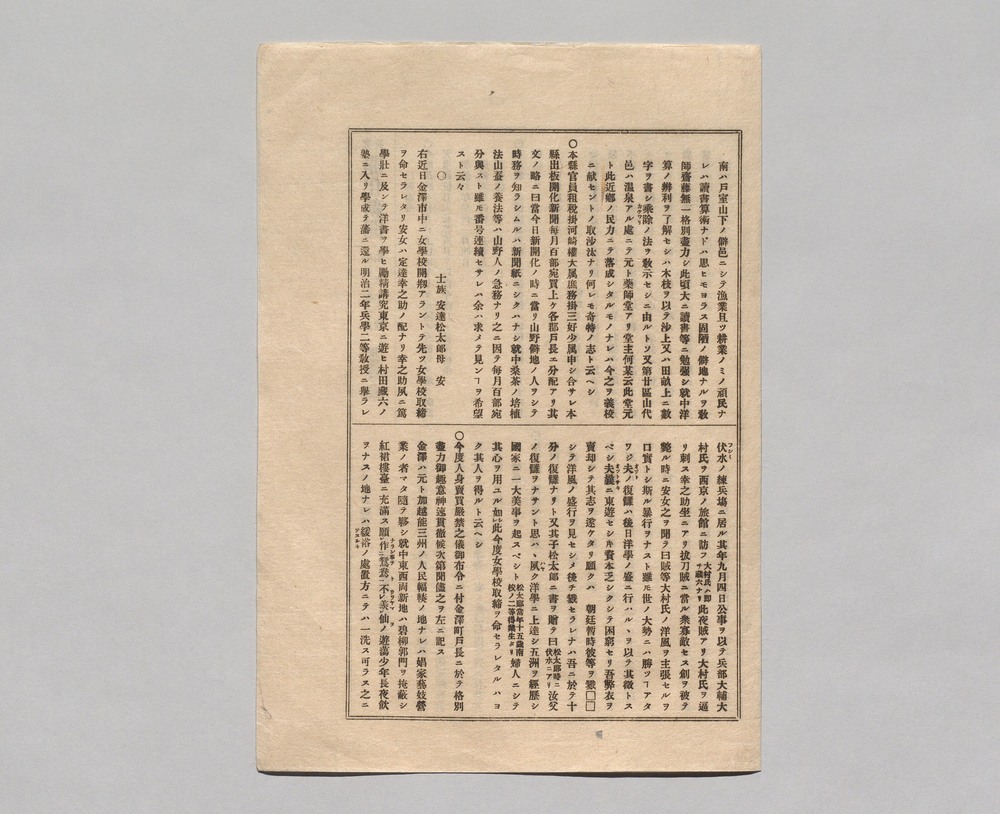 南ハ戸室山下ノ僻邑ニシテ漁業且ツ耕業ノミノ頑民ナ
レハ讀書算術ナドハ思ヒモヨラス固陋ノ僻地ナルヲ敎
師齋藤無一格別盡力シ此頃大ニ讀書等ニ勉强シ就中洋
算ノ辨利ヲ了解セシハ木枝ヲ以テ沙上又ハ田畝上ニ數
字ヲ書シ乘除ノ法ヲ敎示セシニ由ルトソ又第廿區山代
邑ハ溫泉アル處ニテ元ト藥師堂アリ堂主何某云此堂元
ト此近鄕ノ民力ニテ落成シタルモノナレハ今之ヲ義校
ニ獻セントノ取沙汰ナリ何レモ奇特ノ志ト云ヘシ
〇本縣官員租税掛河崎權大属庶務掛三好少属申シ合サレ本
縣出板開化新聞毎月百部宛買上ケ各郡戸長エ分配アリ其
文ノ略ニ曰當今日新開化ノ時ニ當リ山野僻地ノ人ヲシテ
時務ヲ知ラシムルハ新聞紙ニシクハナシ就中桑茶ノ培植
法山蚕ノ養法等ハ山野人ノ急務ナリ之ニ因テ毎月百部宛
分與スト雖モ番号連續セサレハ余ハ求メテ見ンヿヲ希望
スト云々
〇
士族 安達松太郎母 安
右近日金澤市中ニ女學校開剏アラントテ先ツ女學校取締
ヲ命セラレタリ安女ハ定達幸之助ノ配ナリ幸之助夙ニ篤
學壯ニ及ンテ洋書ヲ學ヒ勵精講究東京ニ遊ヒ村田藏六ノ
塾ニ入リ學成テ藩ニ還ル明治二年兵學二等敎授ニ擧ラレ
伏水ノ練兵塲ニ居ル其年九月四日公事ヲ以テ兵部大輔大
村氏ヲ西京ノ旅館ニ訪フ大村氏ハ即チ藏六ナリ此夜賊アリ大村氏ヲ逼
リ刺ス幸之助坐ニアリ拔刀賊ニ當ル衆寡敵セス創ヲ被テ
斃ル時ニ安女之ヲ聞テ曰賊等大村氏ノ洋風ヲ主張セルヲ
口實トシ斯ル暴行ヲナスト雖モ世ノ大勢ニハ勝ツヿアタ
ワジ夫ノ復讎ハ後日洋學ノ盛ニ行ハルヽヲ以テ其徴トス
ベシ夫義ニ東遊セシキ資本乏シクシテ困窮セリ吾弊衣ヲ
賣却シテ其志ヲ遂ケタリ願クハ 朝廷暫時彼等ヲ□□
シテ洋風ノ盛行ヲ見セシメ後チ戮セラレナハ吾ニ於テ十
分ノ復讎ナリト又其子松太郎ニ書ヲ贈テ曰松太郎時ニ伏水ニアリ汝父
ノ復讎ヲナサント思ハヽ夙ク洋學ニ上達シ五洲ヲ經歷シ
國家ニ一大美事ヲ起スベシト松太郎當年十五歳南校ノ二等得業生タリ婦人ニシテ
其心ヲ用ユル如此今度女學校取締ヲ命セラレタルハヨ
ク其人ヲ得ルト云ヘシ
〇今度人身賣買嚴禁之儀御布令ニ付金澤町戸長ニ於テ格別
盡力御趣意神速貫徹候次第聞儘之ヲ左ニ記ス
金澤ハ元ト加越能三州ノ人民輻輳ノ地ナレハ娼家藝妓營
業ノ者マタ隨テ夥シ就中東西両新地ハ碧柳郭門ヲ掩蔽シ
紅裙樓臺ニ充滿ス願作鴛鴦不羨仙ノ遊蕩少年長夜飮
ヲナスノ地ナレハ緩裕ノ處置方ニテハ一洗ス可ラス之ニ